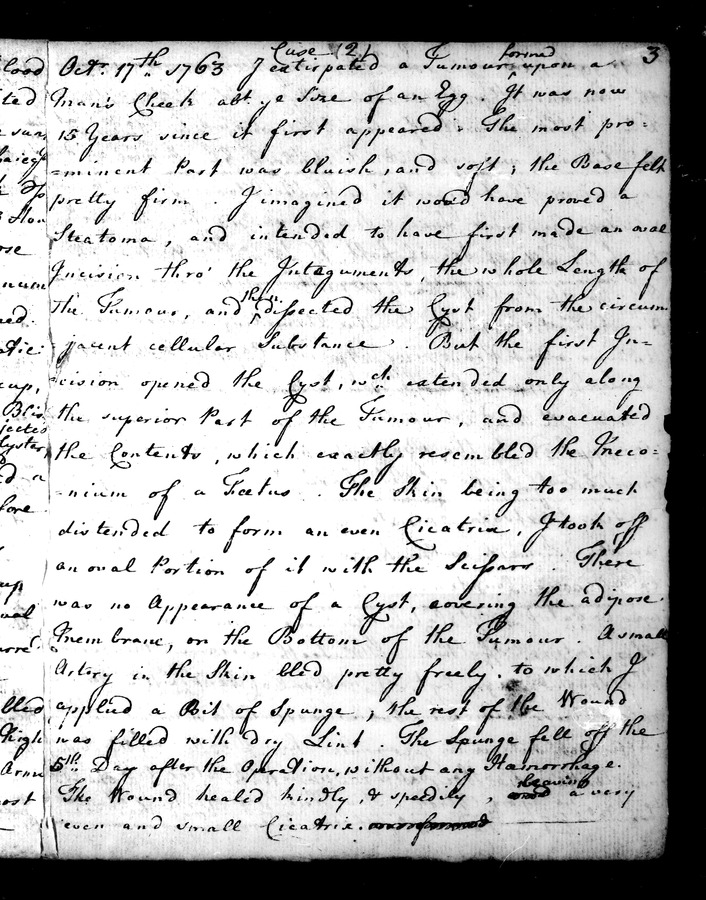 Case (2)
3
Octr. 17th 1763 I extirpated a Tumour formed upon a
Man's Cheek abt. ye Size of an Egg. It was now
15 Years since it first appeared. The most pro=
=minent Part was bluish, and soft; the Base felt
pretty firm. I imagined it would have proved a
Steatoma, and intended to have first made an oval
Incision thro' the Integuments, the whole Length of
the Tumour, and then dissected the Cyst from the circum
jacent cellular Substance. But the first In=
=cision opened the Cyst, wch. extended only along
the superior Part of the Tumour, and evacuated
the Contents, which exactly resembled the Meco=
=nium of a Foetus. The Skin being too much
distended to form an even Cicatrix, I took off
an oval Portion of it with the Scissars. There
was no Appearance of a Cyst, covering the adipose
Membrane, on the Bottom of the Tumour. A small
Artery in the Skin bled pretty freely, to which I
applied a Bit of Spunge; the rest of the Wound
was filled with dry Lint. The Spunge fell off the
5th. Day after the Operation, without any Hæmorrhage.
The Wound healed kindly, & speedily, leaving a very
even and small Cicatrix.